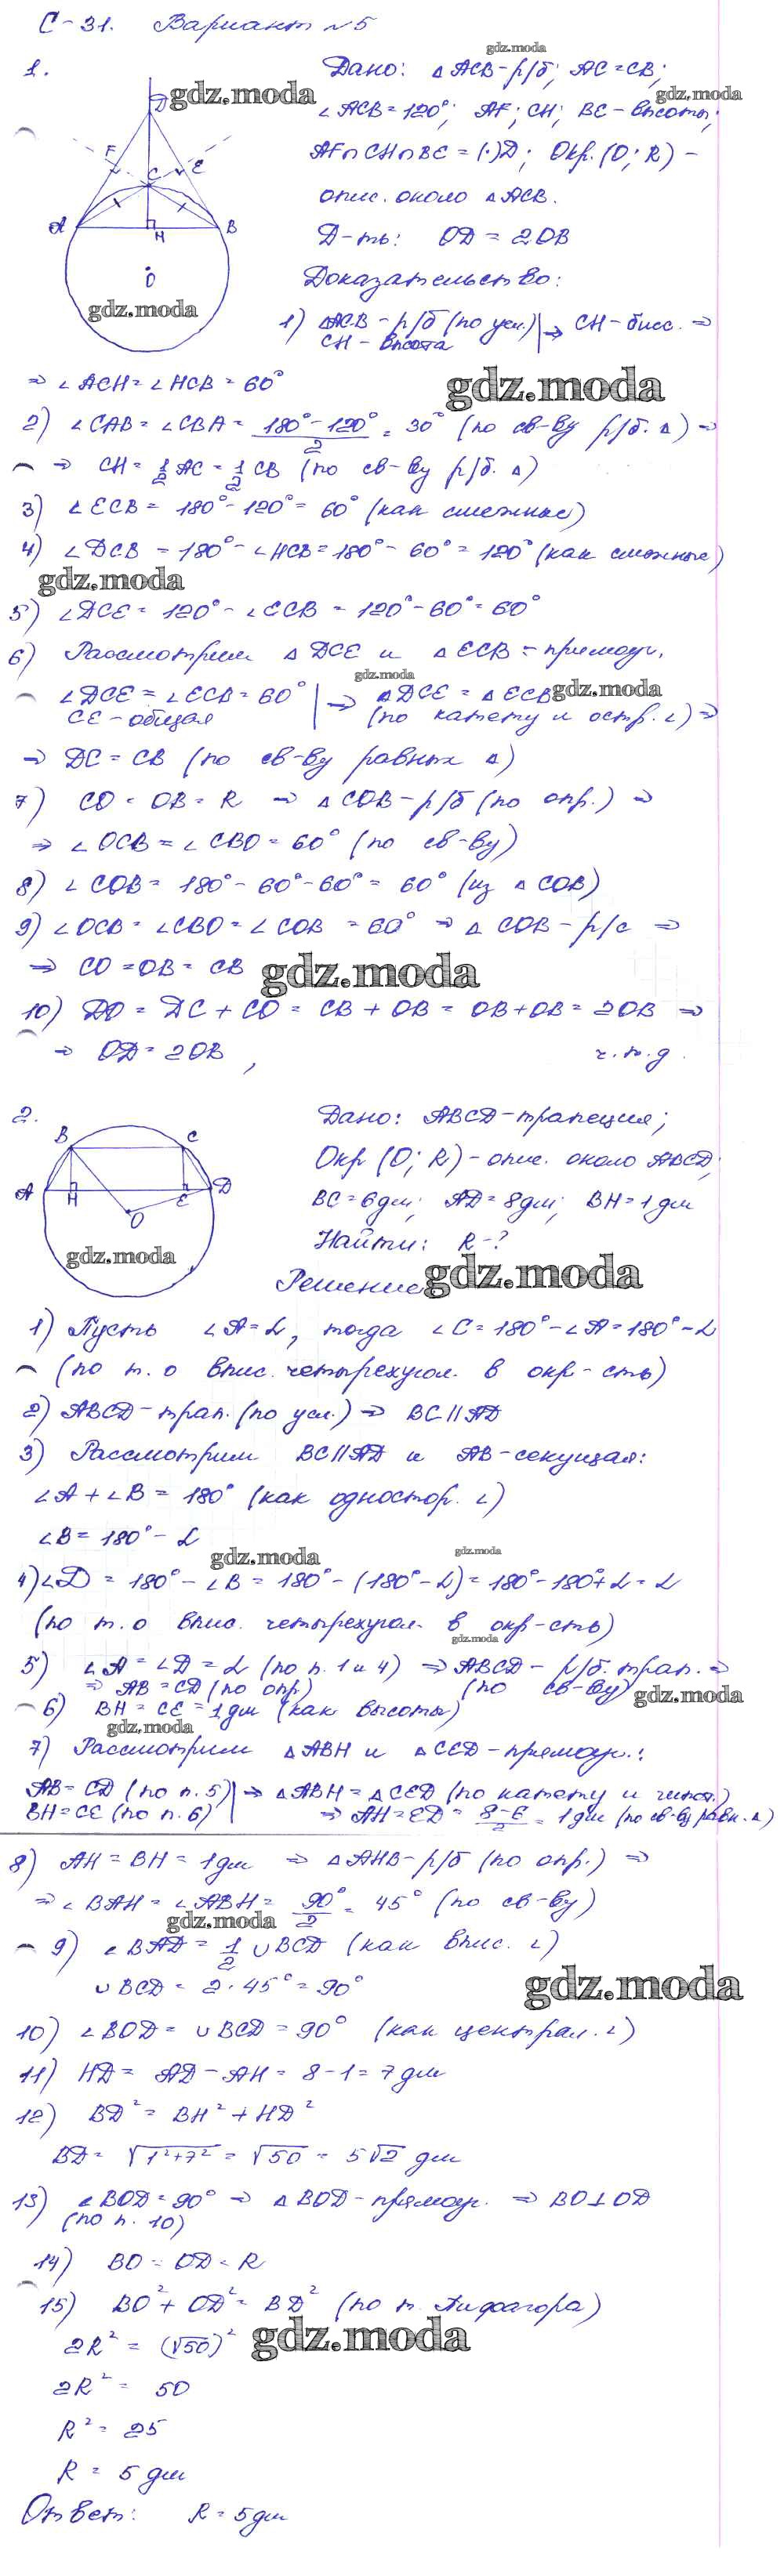 С-31. Вариант №5
gdz.moda
1.
Дано: △ACB-р/б; AC=CB;
D gdz.moda
gdz.moda
∠ACB=120°; AF; CH; BE-высоты;
F C E
AF∩CH∩BE=(·)D; Окр.(O;R)-
опис. около △ACB.
A H B
Д-ть: OD=2OB
O
Доказательство:
gdz.moda
1) △ACB-р/б (по усл.) | ⇒ CH-бисс. ⇒
CH-высота
⇒ ∠ACH=∠HCB=60°
gdz.moda
2) ∠CAB=∠CBA= (180°-120°)/2 = 30° (по св-ву р/б. △) ⇒
⇒ CH=1/2 AC=1/2 CB (по св-ву р/б. △)
3) ∠ECB=180°-120°=60° (как смежные)
4) ∠DCB=180°-∠HCB=180°-60°=120° (как смежные)
gdz.moda
5) ∠DCE=120°-∠ECB=120°-60°=60°
6) Рассмотрим △DCE и △ECB-прямоуг.
gdz.moda
∠DCE=∠ECB=60° | ⇒ △DCE=△ECB gdz.moda
CE-общая (по катету и остр. ∠) ⇒
⇒ DC=CB (по св-ву равных △)
7) CO=OB=R ⇒ △COB-р/б (по опр.) ⇒
⇒ ∠OCB=∠CBO=60° (по св-ву)
8) ∠COB=180°-60°-60°=60° (из △COB)
9) ∠OCB=∠CBO=∠COB=60° ⇒ △COB-р/с ⇒
⇒ CO=OB=CB gdz.moda
10) DO=DC+CO=CB+OB=OB+OB=2OB ⇒
⇒ OD=2OB, ч.т.д.
2.
Дано: ABCD-трапеция;
B C
Окр(O;R)-опис. около ABCD;
A H E D
BC=6дм; AD=8дм; BH=1дм
O
Найти: R-?
gdz.moda
Решение gdz.moda
1) Пусть ∠A=α, тогда ∠C=180°-∠A=180°-α
(по т. о впис. четырехугол. в окр-сть)
2) ABCD-трап. (по усл.) ⇒ BC||AD
3) Рассмотрим BC||AD и AB-секущая:
∠A+∠B=180° (как одностор. ∠)
∠B=180°-α
gdz.moda
gdz.moda
4) ∠D=180°-∠B=180°-(180°-α)=180°-180°+α=α
(по т. о впис. четырехугол. в окр-сть)
gdz.moda
5) ∠A=∠D=α (по п. 1 и 4) ⇒ ABCD-р/б. трап. ⇒
⇒ AB=CD (по опр) (по св-ву) gdz.moda
6) BH=CE=1дм (как высоты)
gdz.moda
7) Рассмотрим △ABH и △CED-прямоуг.:
AB=CD (по п. 5) | ⇒ △ABH=△CED (по катету и гипот.)
BH=CE (по п. 6) ⇒ AH=ED= (8-6)/2 = 1дм (по св-ву равн. △)
8) AH=BH=1дм ⇒ △AHB-р/б (по опр.) ⇒
⇒ ∠BAH=∠ABH= 90°/2 = 45° (по св-ву)
gdz.moda
9) ∠BAD=1/2 ∪BCD (как впис. ∠)
∪BCD=2·45°=90°
gdz.moda
10) ∠BOD=∪BCD=90° (как централ. ∠)
11) HD=AD-AH=8-1=7дм
12) BD²=BH²+HD²
BD=√(1²+7²)=√50=5√2 дм
13) ∠BOD=90° ⇒ △BOD-прямоуг. ⇒ BO⊥OD
(по п. 10)
14) BO=OD=R
15) BO²+OD²=BD² (по т. Пифагора)
2R²=(√50)² gdz.moda
2R²=50
R²=25
R=5дм
Ответ: R=5дм